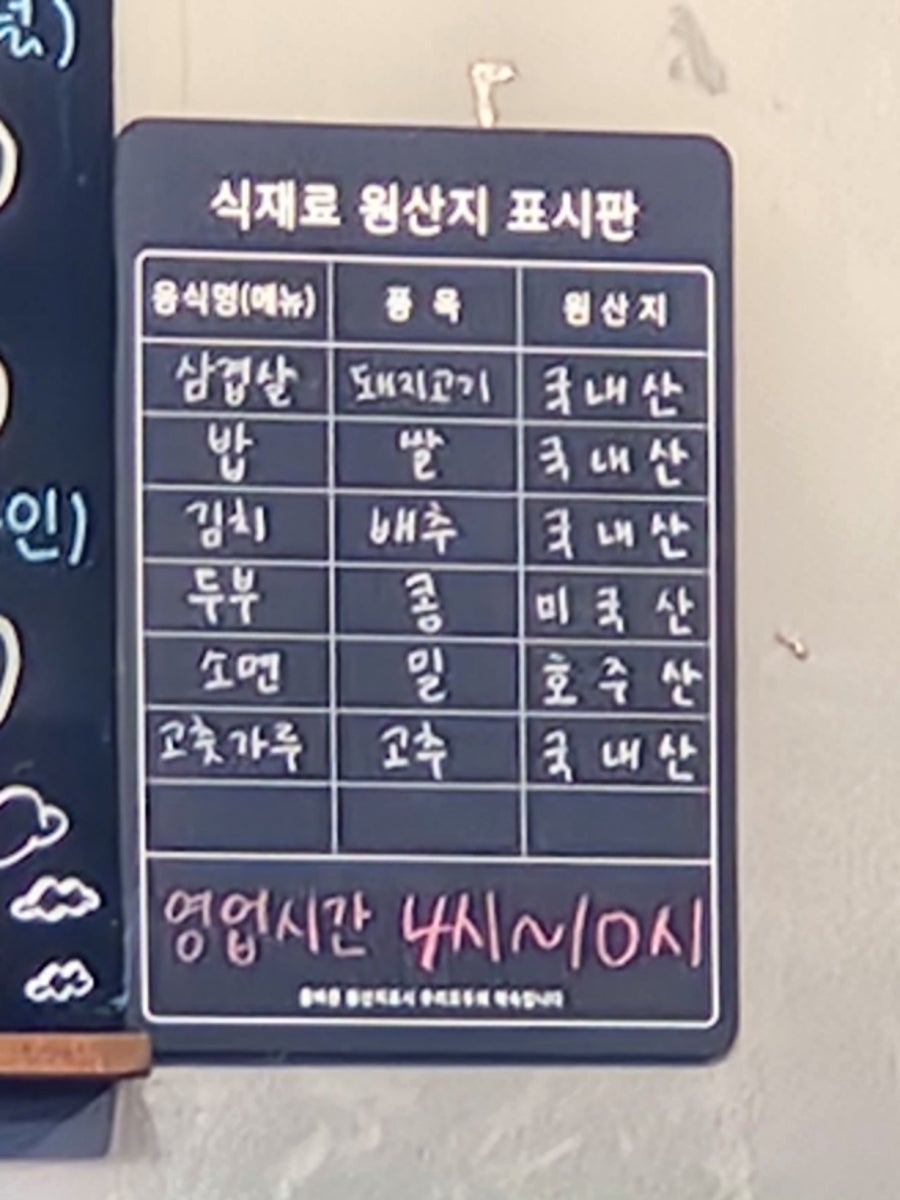 식재료 원산지 표시판
음식명(메뉴) 품 목 원 산 지
삼겹살 돼지고기 국 내 산
밥 쌀 국 내 산
김치 배추 국 내 산
두부 콩 미 국 산
소면 밀 호 주 산
고춧가루 고추 국 내 산
영업시간 4시~10시
올바른 원산지표시 우리모두의 약속입니다
인)